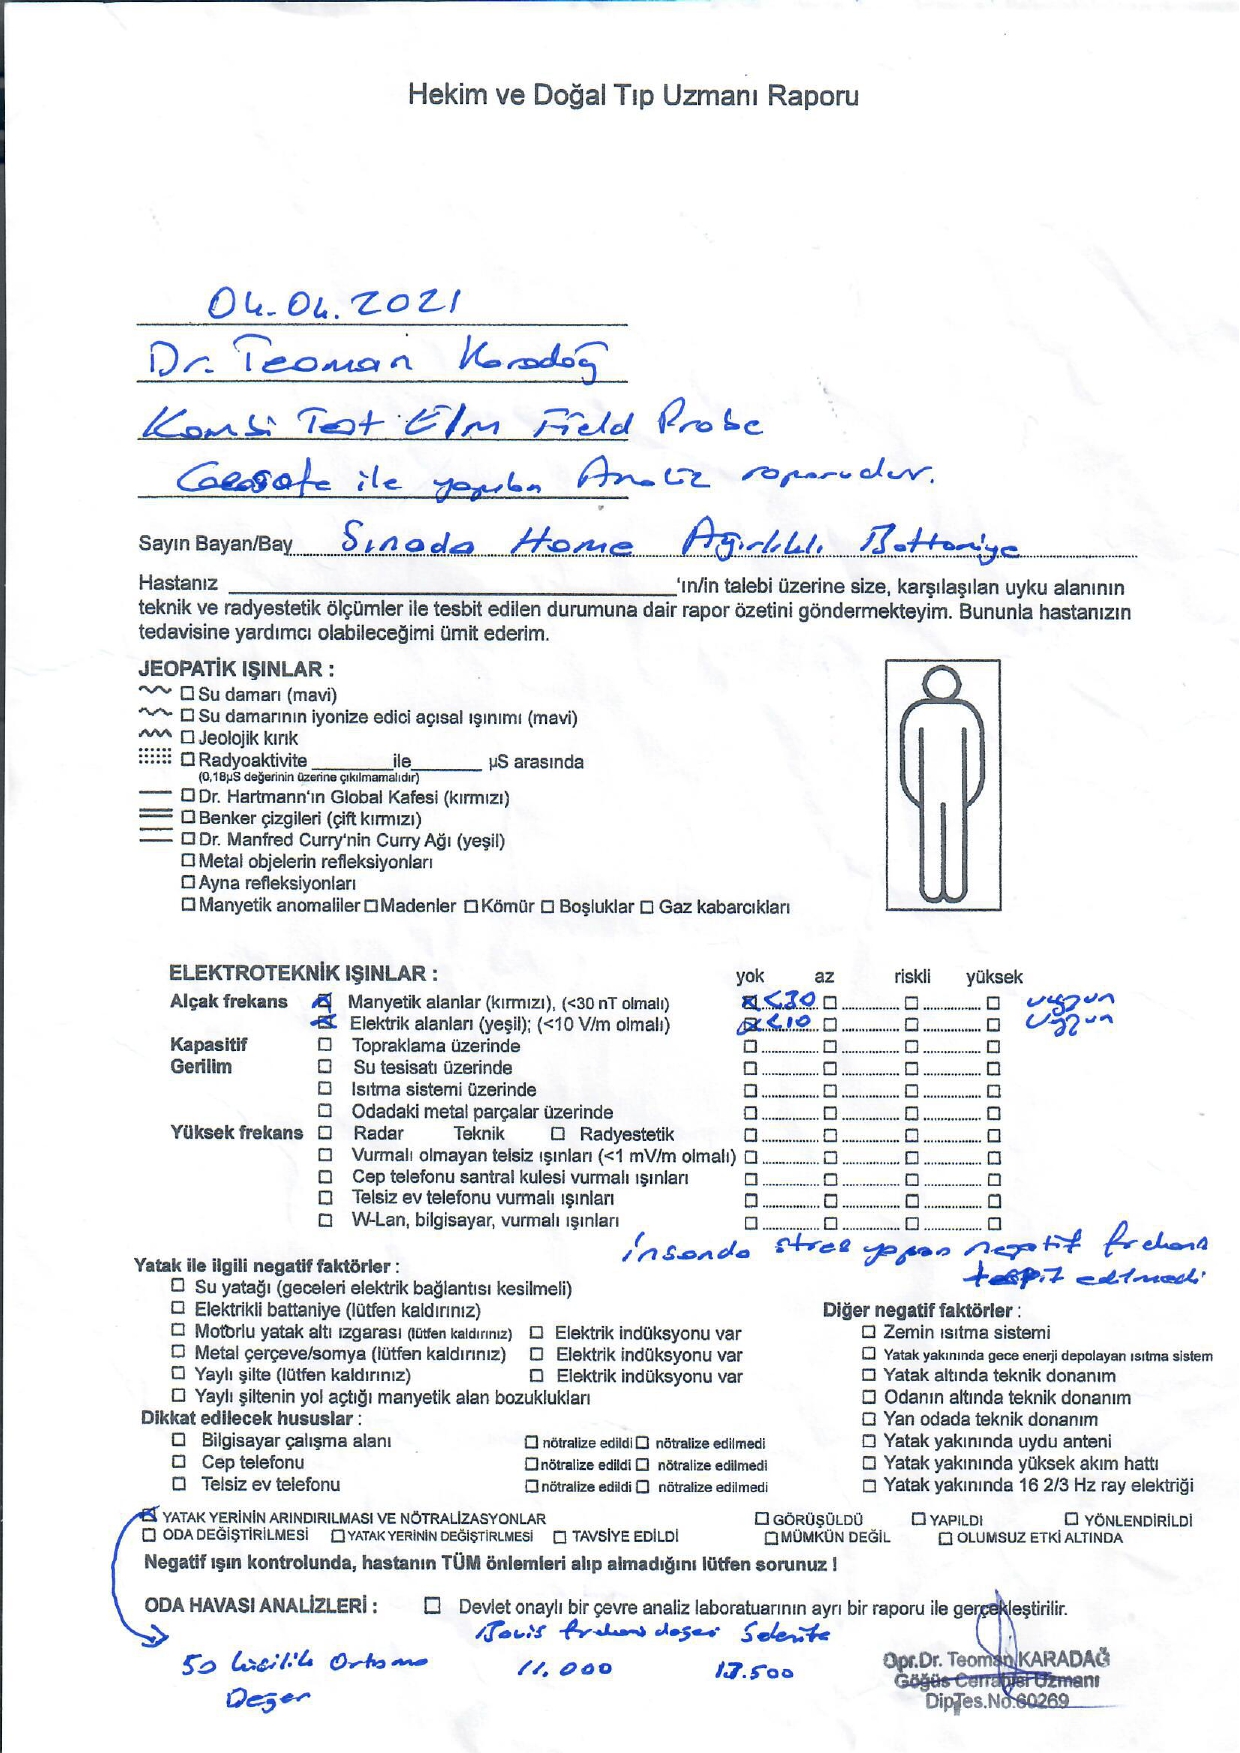 Hekim ve Doğal Tıp Uzmanı Raporu
04.04.2021
Dr. Teoman Karadağ
Kombi Test Elm Field Probe
Geosafe ile yapılan Analiz raporudur.
Sayın Bayan/Bay Sinada Home Ağırlıklı Battaniye
Hastanız ____ 'ın/in talebi üzerine size, karşılaşılan uyku alanının
teknik ve radyestetik ölçümler ile tesbit edilen durumuna dair rapor özetini göndermekteyim. Bununla hastanızın
tedavisine yardımcı olabileceğimi ümit ederim.
JEOPATİK IŞINLAR :
Su damarı (mavi)
Su damarının iyonize edici açısal ışınımı (mavi)
Jeolojik kırık
Radyoaktivite ____ ile ____ µS arasında
(0,18µS değerinin üzerine çıkılmamalıdır)
Dr. Hartmann'ın Global Kafesi (kırmızı)
Benker çizgileri (çift kırmızı)
Dr. Manfred Curry'nin Curry Ağı (yeşil)
Metal objelerin refleksiyonları
Ayna refleksiyonları
Manyetik anomaliler Madenler Kömür Boşluklar Gaz kabarcıkları
ELEKTROTEKNİK IŞINLAR : yok az riskli yüksek
Alçak frekans Manyetik alanlar (kırmızı), (<30 nT olmalı) <30 uygun
Elektrik alanları (yeşil); (<10 V/m olmalı) <10 uygun
Kapasitif Topraklama üzerinde
Gerilim Su tesisatı üzerinde
Isıtma sistemi üzerinde
Odadaki metal parçalar üzerinde
Yüksek frekans Radar Teknik Radyestetik
Vurmalı olmayan telsiz ışınları (<1 mV/m olmalı)
Cep telefonu santral kulesi vurmalı ışınları
Telsiz ev telefonu vurmalı ışınları
W-Lan, bilgisayar, vurmalı ışınları
İnsanda stres yapan negatif frekans
tespit edilmedi
Yatak ile ilgili negatif faktörler :
Su yatağı (geceleri elektrik bağlantısı kesilmeli)
Elektrikli battaniye (lütfen kaldırınız)
Motorlu yatak altı ızgarası (lütfen kaldırınız) Elektrik indüksyonu var
Metal çerçeve/somya (lütfen kaldırınız) Elektrik indüksyonu var
Yaylı şilte (lütfen kaldırınız) Elektrik indüksyonu var
Yaylı şiltenin yol açtığı manyetik alan bozuklukları
Diğer negatif faktörler :
Zemin ısıtma sistemi
Yatak yakınında gece enerji depolayan ısıtma sistem
Yatak altında teknik donanım
Odanın altında teknik donanım
Yan odada teknik donanım
Yatak yakınında uydu anteni
Yatak yakınında yüksek akım hattı
Yatak yakınında 16 2/3 Hz ray elektriği
Dikkat edilecek hususlar :
Bilgisayar çalışma alanı nötralize edildi nötralize edilmedi
Cep telefonu nötralize edildi nötralize edilmedi
Telsiz ev telefonu nötralize edildi nötralize edilmedi
YATAK YERİNİN ARINDIRILMASI VE NÖTRALİZASYONLAR GÖRÜŞÜLDÜ YAPILDI YÖNLENDİRİLDİ
ODA DEĞİŞTİRİLMESİ YATAK YERİNİN DEĞİŞTİRLMESİ TAVSİYE EDİLDİ MÜMKÜN DEĞİL OLUMSUZ ETKİ ALTINDA
Negatif ışın kontrolunda, hastanın TÜM önlemleri alıp almadığını lütfen sorunuz !
ODA HAVASI ANALİZLERİ : Devlet onaylı bir çevre analiz laboratuarının ayrı bir raporu ile gerçekleştirilir.
Bovis frekans değeri
50 kişilik Ortama 11.000 17.500
Değer
Opr.Dr. Teoman KARADAĞ
Göğüs Cerrahisi Uzmanı
Dip.Tes.No:60269